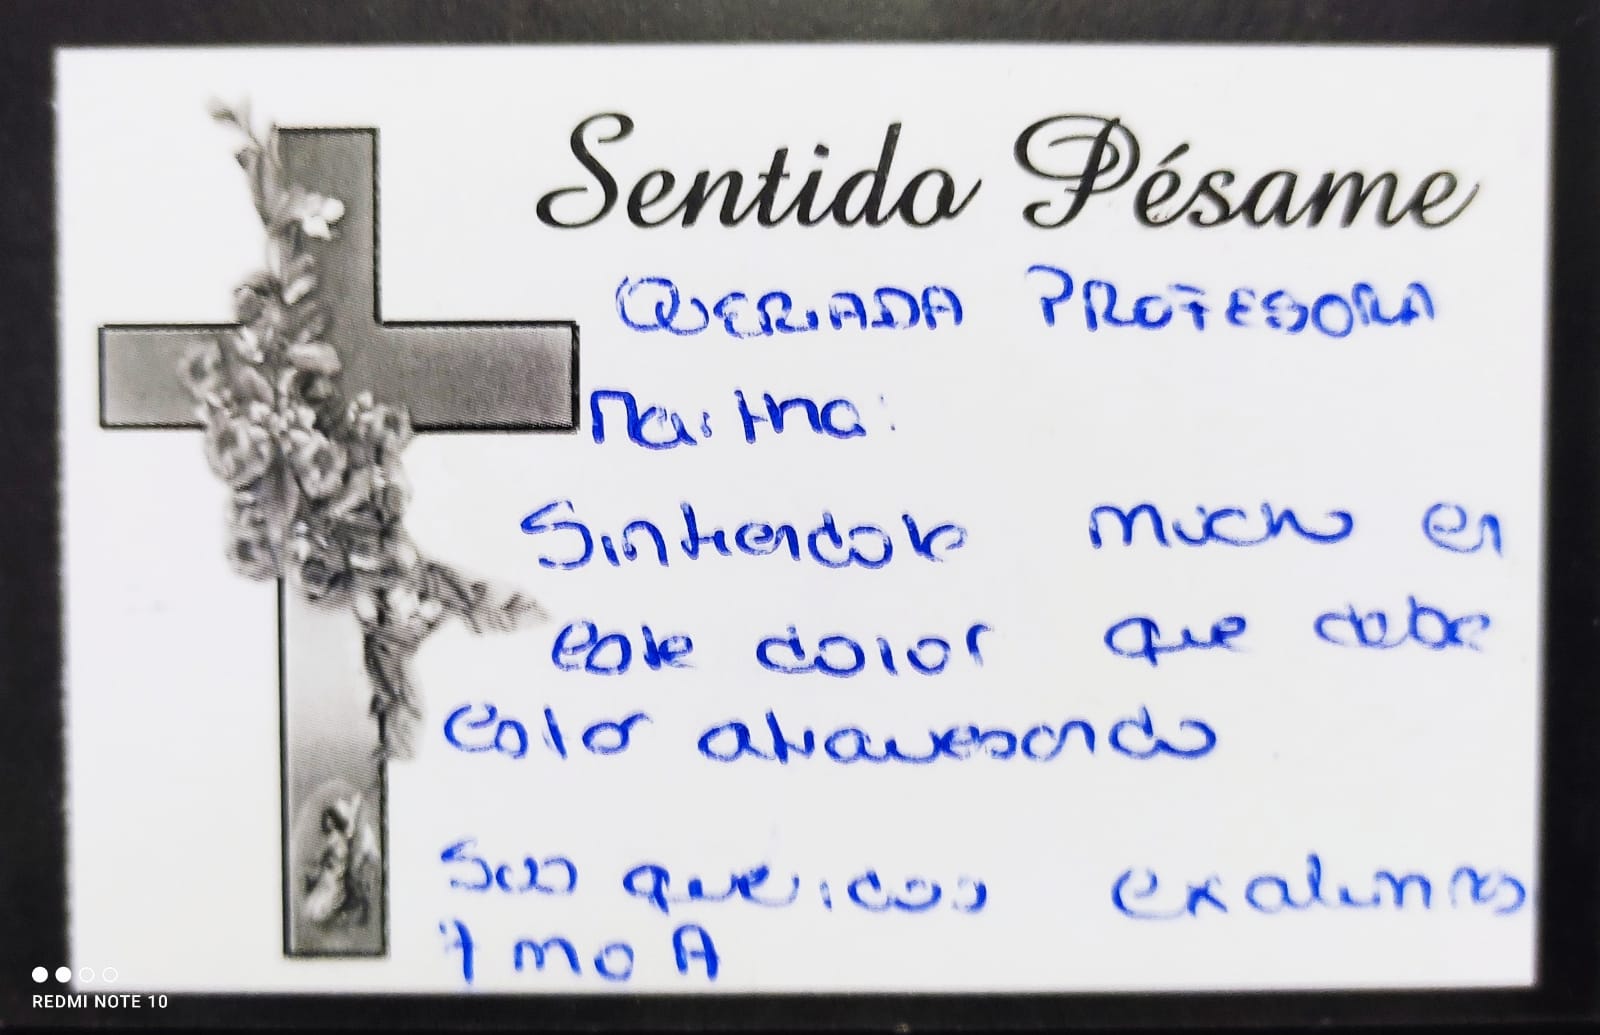 Sentido Pésame
QUERIADA PROFESORA
Martha:
Sintiendole mucho en
este dolor que debe
estar atravesando
Sus queridos exalumnos
7 mo A
REDMI NOTE 10